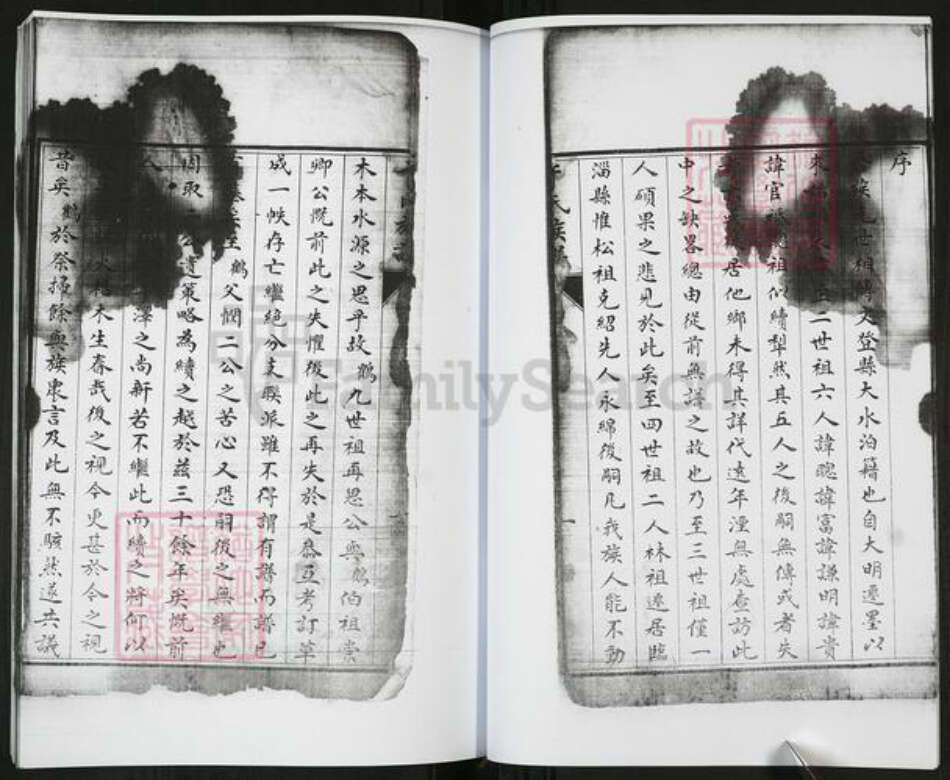 序
矣先世相傳文登縣大水泊籍也自大明遷墨以
來 二世祖六人諱聰諱富諱謙明諱貴
諱官 祖似續犁然其五人之後嗣無傳或者失
居他鄉未得其詳代遠年湮無處查訪此
中之缺畧總由從前無譜之故也乃至三世祖僅一
人碩果之悲見於此矣至四世祖二人林祖遠居臨
淄縣惟松祖克紹先人永綿後嗣凡我族人能不動
木本水源之思乎故鶴九世祖再思公與鶴伯祖棠
卿公慨前此之失懼後此之再失於是恭互考訂草
成一帙存亡繼絕分支聯派雖不得謂有譜而譜已
矣至鶴父憫二公之苦心又恐嗣後之無繼也
因取二公遺策略為續之越於茲三十餘年矣慨前
人 澤之尚新若不繼此而續之將何以
木生春哉後之視今更甚於今之視
昔矣鶴於祭掃餘與族衆言及此無不駭然遂共議
FamilySearch